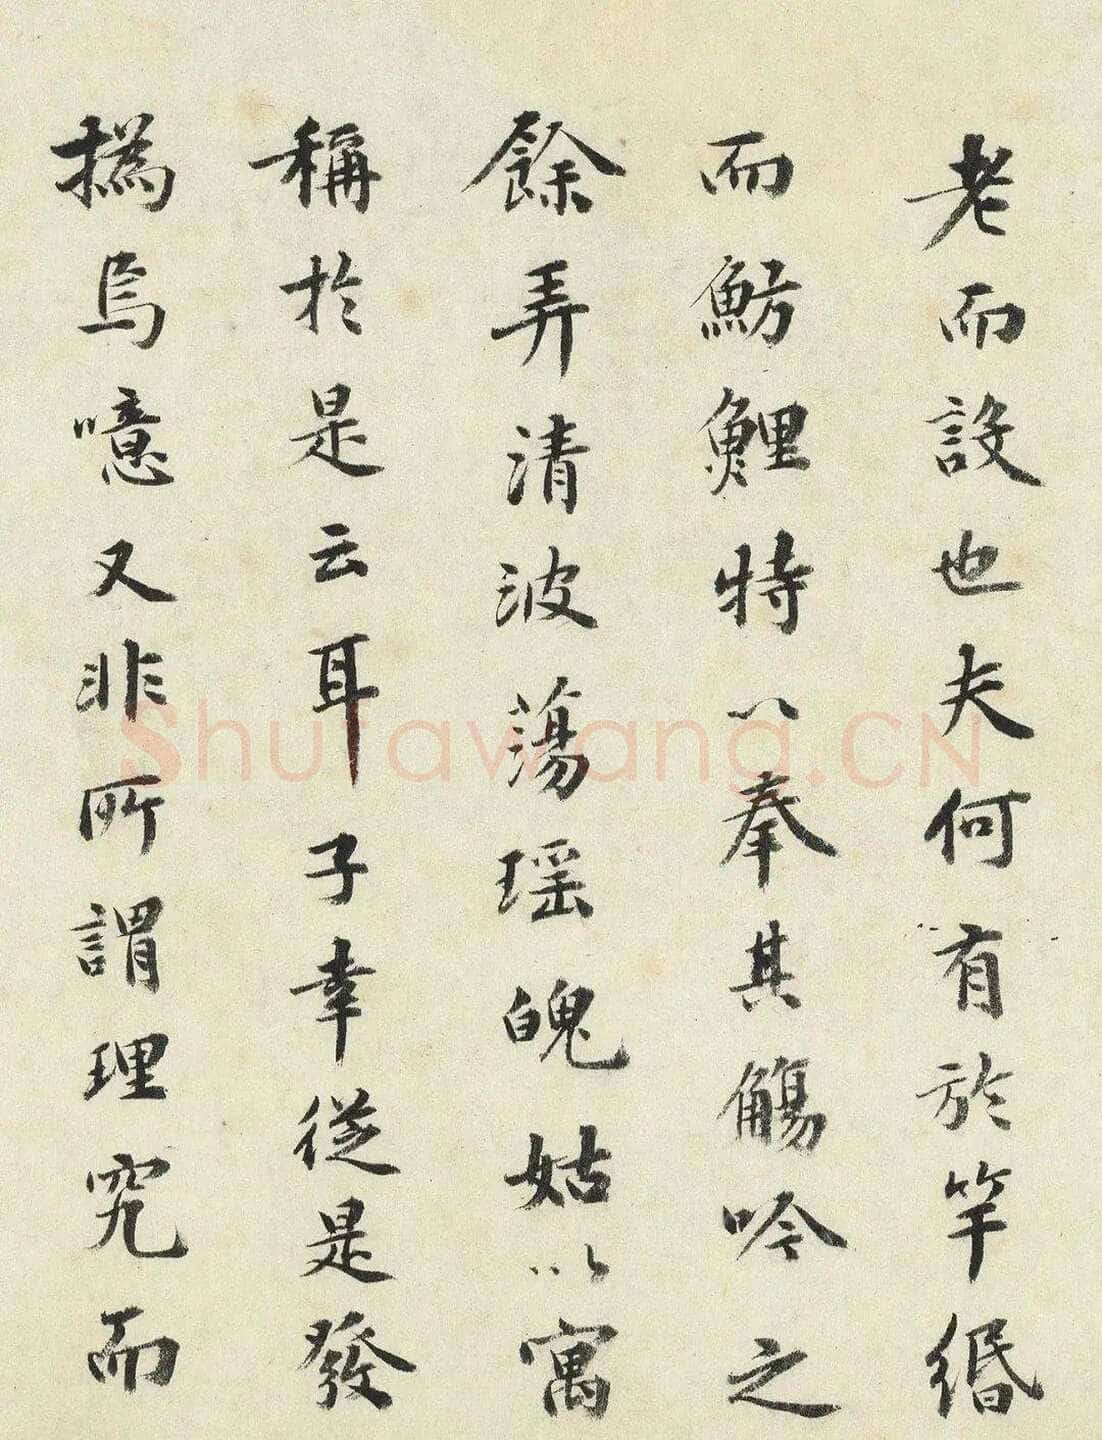 老而設也夫何有於竿緡
而魴鯉特以奉其觴吟之
餘弄清波蕩瑶魄姑以寓
稱於是云耳子幸從是發
撝焉噫又非所謂理究而
Shufawang.CN